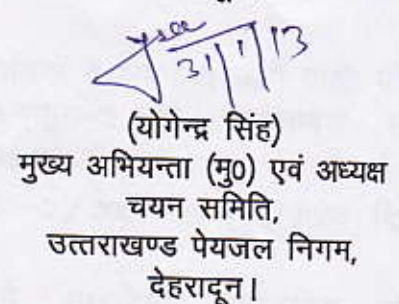 31/1/13
(योगेन्द्र सिंह)
मुख्य अभियन्ता (मु0) एवं अध्यक्ष
चयन समिति,
उत्तराखण्ड पेयजल निगम,
देहरादून।